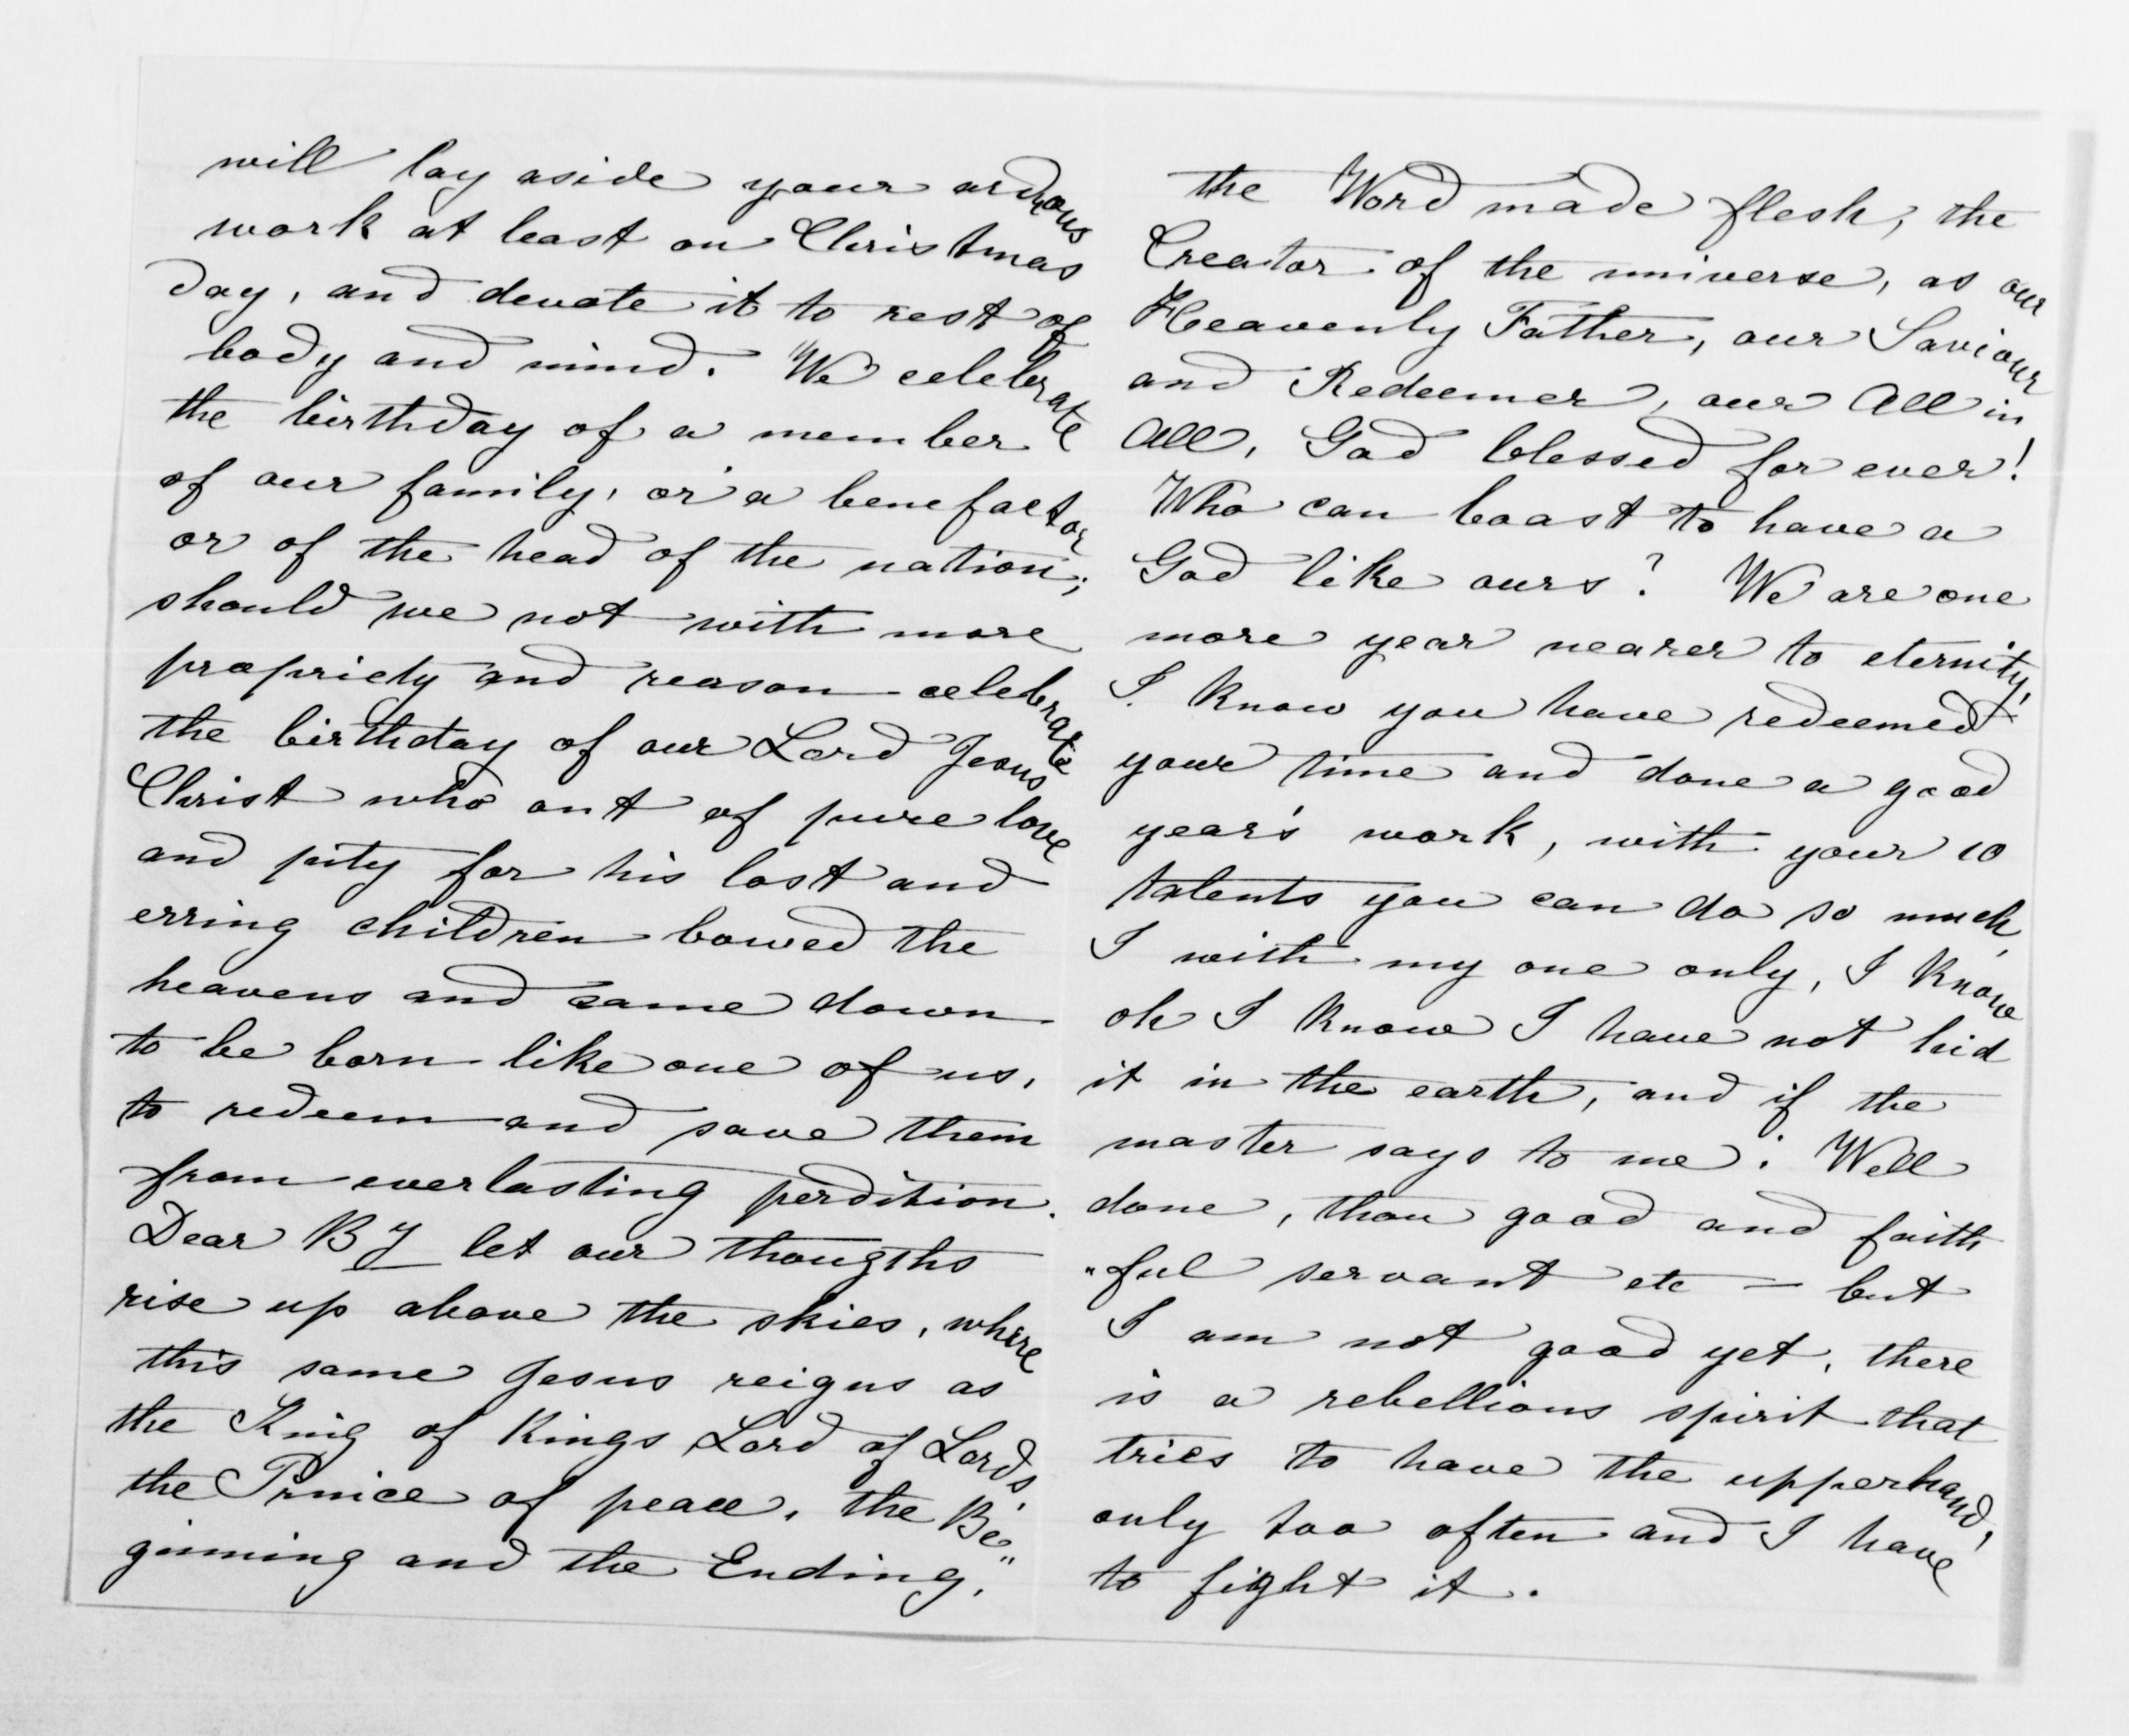 will lay aside your arduous
work at least on Christmas
day, and devote it to rest of
body and mind. We celebrate
the birthday of a member
of our family, or a benefactor
or of the head of the nation;
should we not with more
propriety and reason celebrate
the birthday of our Lord Jesus
Christ who out of pure love
and pity for his lost and
erring children bowed the
heavens and came down
to be born like one of us,
to redeem and save them
from everlasting perdition.
Dear B Y let our thougths
rise up above the skies, where
this same Jesus reigns as
the King of Kings Lord of Lords,
the Prince of peace, the Be"
ginning and the Ending,
the Word made flesh, the
Creator of the universe, as our
Heavenly Father, our Saviour
and Redeemer, our All in
All, God blessed for ever!
Who can boast to have a
God like ours? We are one
more year nearer to eternity!
I know you have redeemed
your time and done a good
year's work, with your 10
talents you can do so much,
I with my one only, I know
oh I know I have not hid
it in the earth, and if the
master says to me: Well
done, thou good and faith
"ful servant etc — but
I am not good yet, there
is a rebellious spirit that
tries to have the upperhand,
only too often and I have
to fight it.